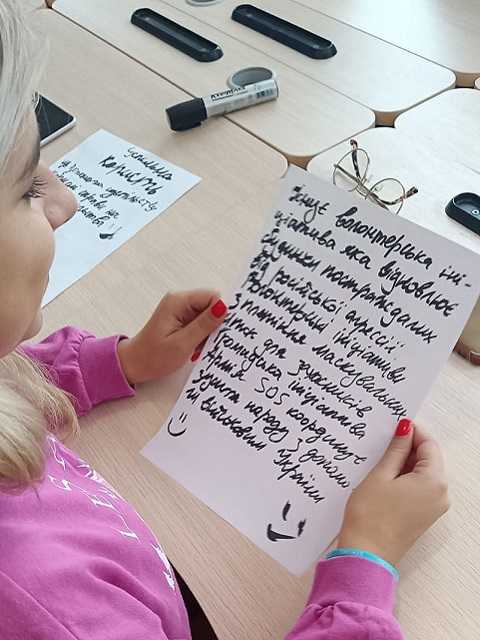 Успішна
користь
Існує волонтерська іні-
ціатива яка відновлює
будинки постраждалих
від російської агресії.
Волонтерські ініціативи
з плетіння маскувальних
сіток для захисників
Громадська ініціатива
Армія SOS координує
зусилля народу з допомоги
військовим України